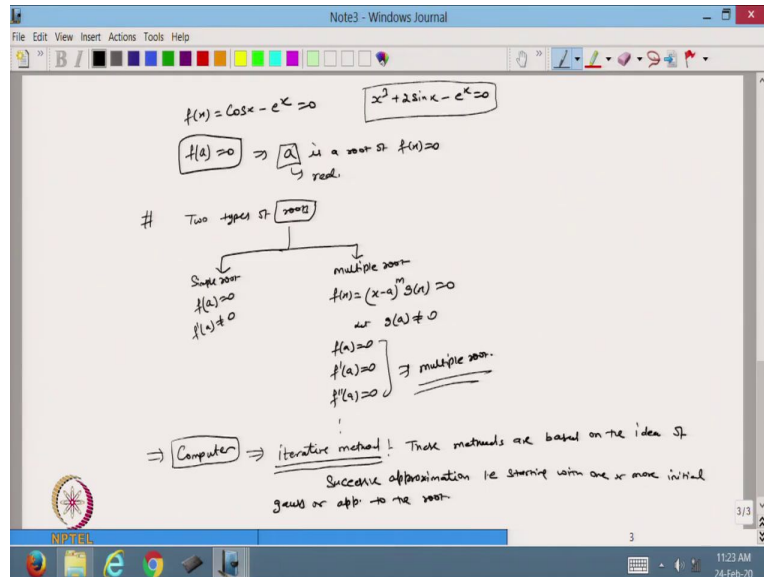 Note3 - Windows Journal
File Edit View Insert Actions Tools Help
f(x) = Cosx - e^x = 0
x^3 + 2 sinx - e^x = 0
f(a) = 0 ⇒ a is a root of f(x) = 0
real.
# Two types of roots
Simple root
f(a) = 0
f'(a) ≠ 0
multiple root
f(x) = (x-a)^m g(x) = 0
g(a) ≠ 0
f(a) = 0
f'(a) = 0
f''(a) = 0
⇒ multiple root.
⇒ Computer ⇒ iterative method : These methods are based on the idea of
Successive approximation ie starting with one or more initial
guess or app. to the root.
NPTEL
3/3
3
11:23 AM
24-Feb-20